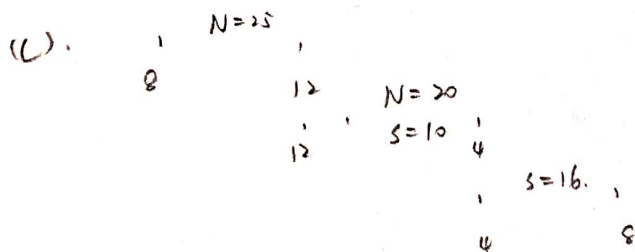 (C). N=25
8 12 N=20
12 S=10 4
S=16.
4 8